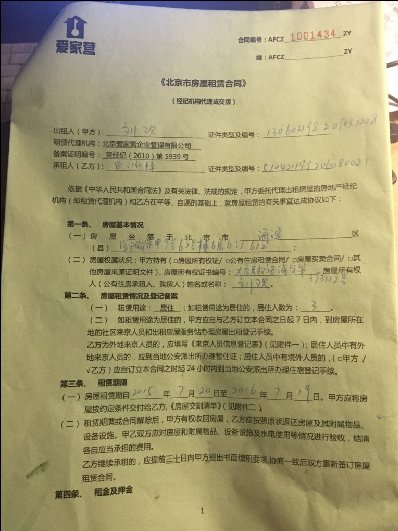 爱家营
合同编号：AFCZ 1001434 ZY
续：AFCZ ZY
《北京市房屋租赁合同》
（经纪机构代理成交版）
出租人（甲方）： 证件类型及编号：
租赁代理机构：北京爱家营企业管理有限公司
备案证明编号：京经纪（2010）第5939号
承租人（乙方）： 证件类型及编号：
依据《中华人民共和国合同法》及有关法律、法规的规定，甲方委托代理出租房屋的房地产经纪
机构（即租赁代理机构）和乙方在平等、自愿的基础上，就房屋租赁的有关事宜达成协议如下：
第一条、房屋基本情况
（一）房屋坐落于北京市 区
（县）
（二）房屋权属状况：甲方持有（□房屋所有权证/□公有住房租赁合同/□房屋买卖合同/□其
他房屋来源证明文件），房屋所有权证书编号： 房屋所有权
人（公有住房承租人、购房人）姓名或名称：
第二条、房屋租赁情况及登记备案
（一）租赁用途：居住；如租赁用途为居住的，居住人数为：3。
（二）如租赁用途为居住的，甲方应自与乙方订立本合同之日起7日内，到房屋所在
地的社区来京人员和出租房屋服务站办理房屋出租登记手续。
乙方为外地来京人员的，应填写《来京人员信息登记表》（见附件一）；居住人中有外
地来京人员的，应到当地公安派出所办理暂住证；居住人中有境外人员的，（□甲方/
√乙方）应自订立本合同之时起24小时内到当地公安派出所办理住宿登记手续。
第三条、租赁期限
（一）房屋租赁期自2015年7月20日至2016年7月19日。甲方应将房
屋按约定条件交付给乙方。《房屋交割清单》（见附件二）。
（二）租赁期满或合同解除后，甲方有权收回房屋，乙方应按照原状返还房屋及其附属物品、
设备设施。甲乙双方应对房屋和附属物品、设备设施及水电使用等情况进行验收，结清
各自应当承担的费用。
乙方继续承租的，应提前三十日向甲方提出书面续租要求，协商一致后双方重新签订房屋
租赁合同。
第四条、租金及押金
1